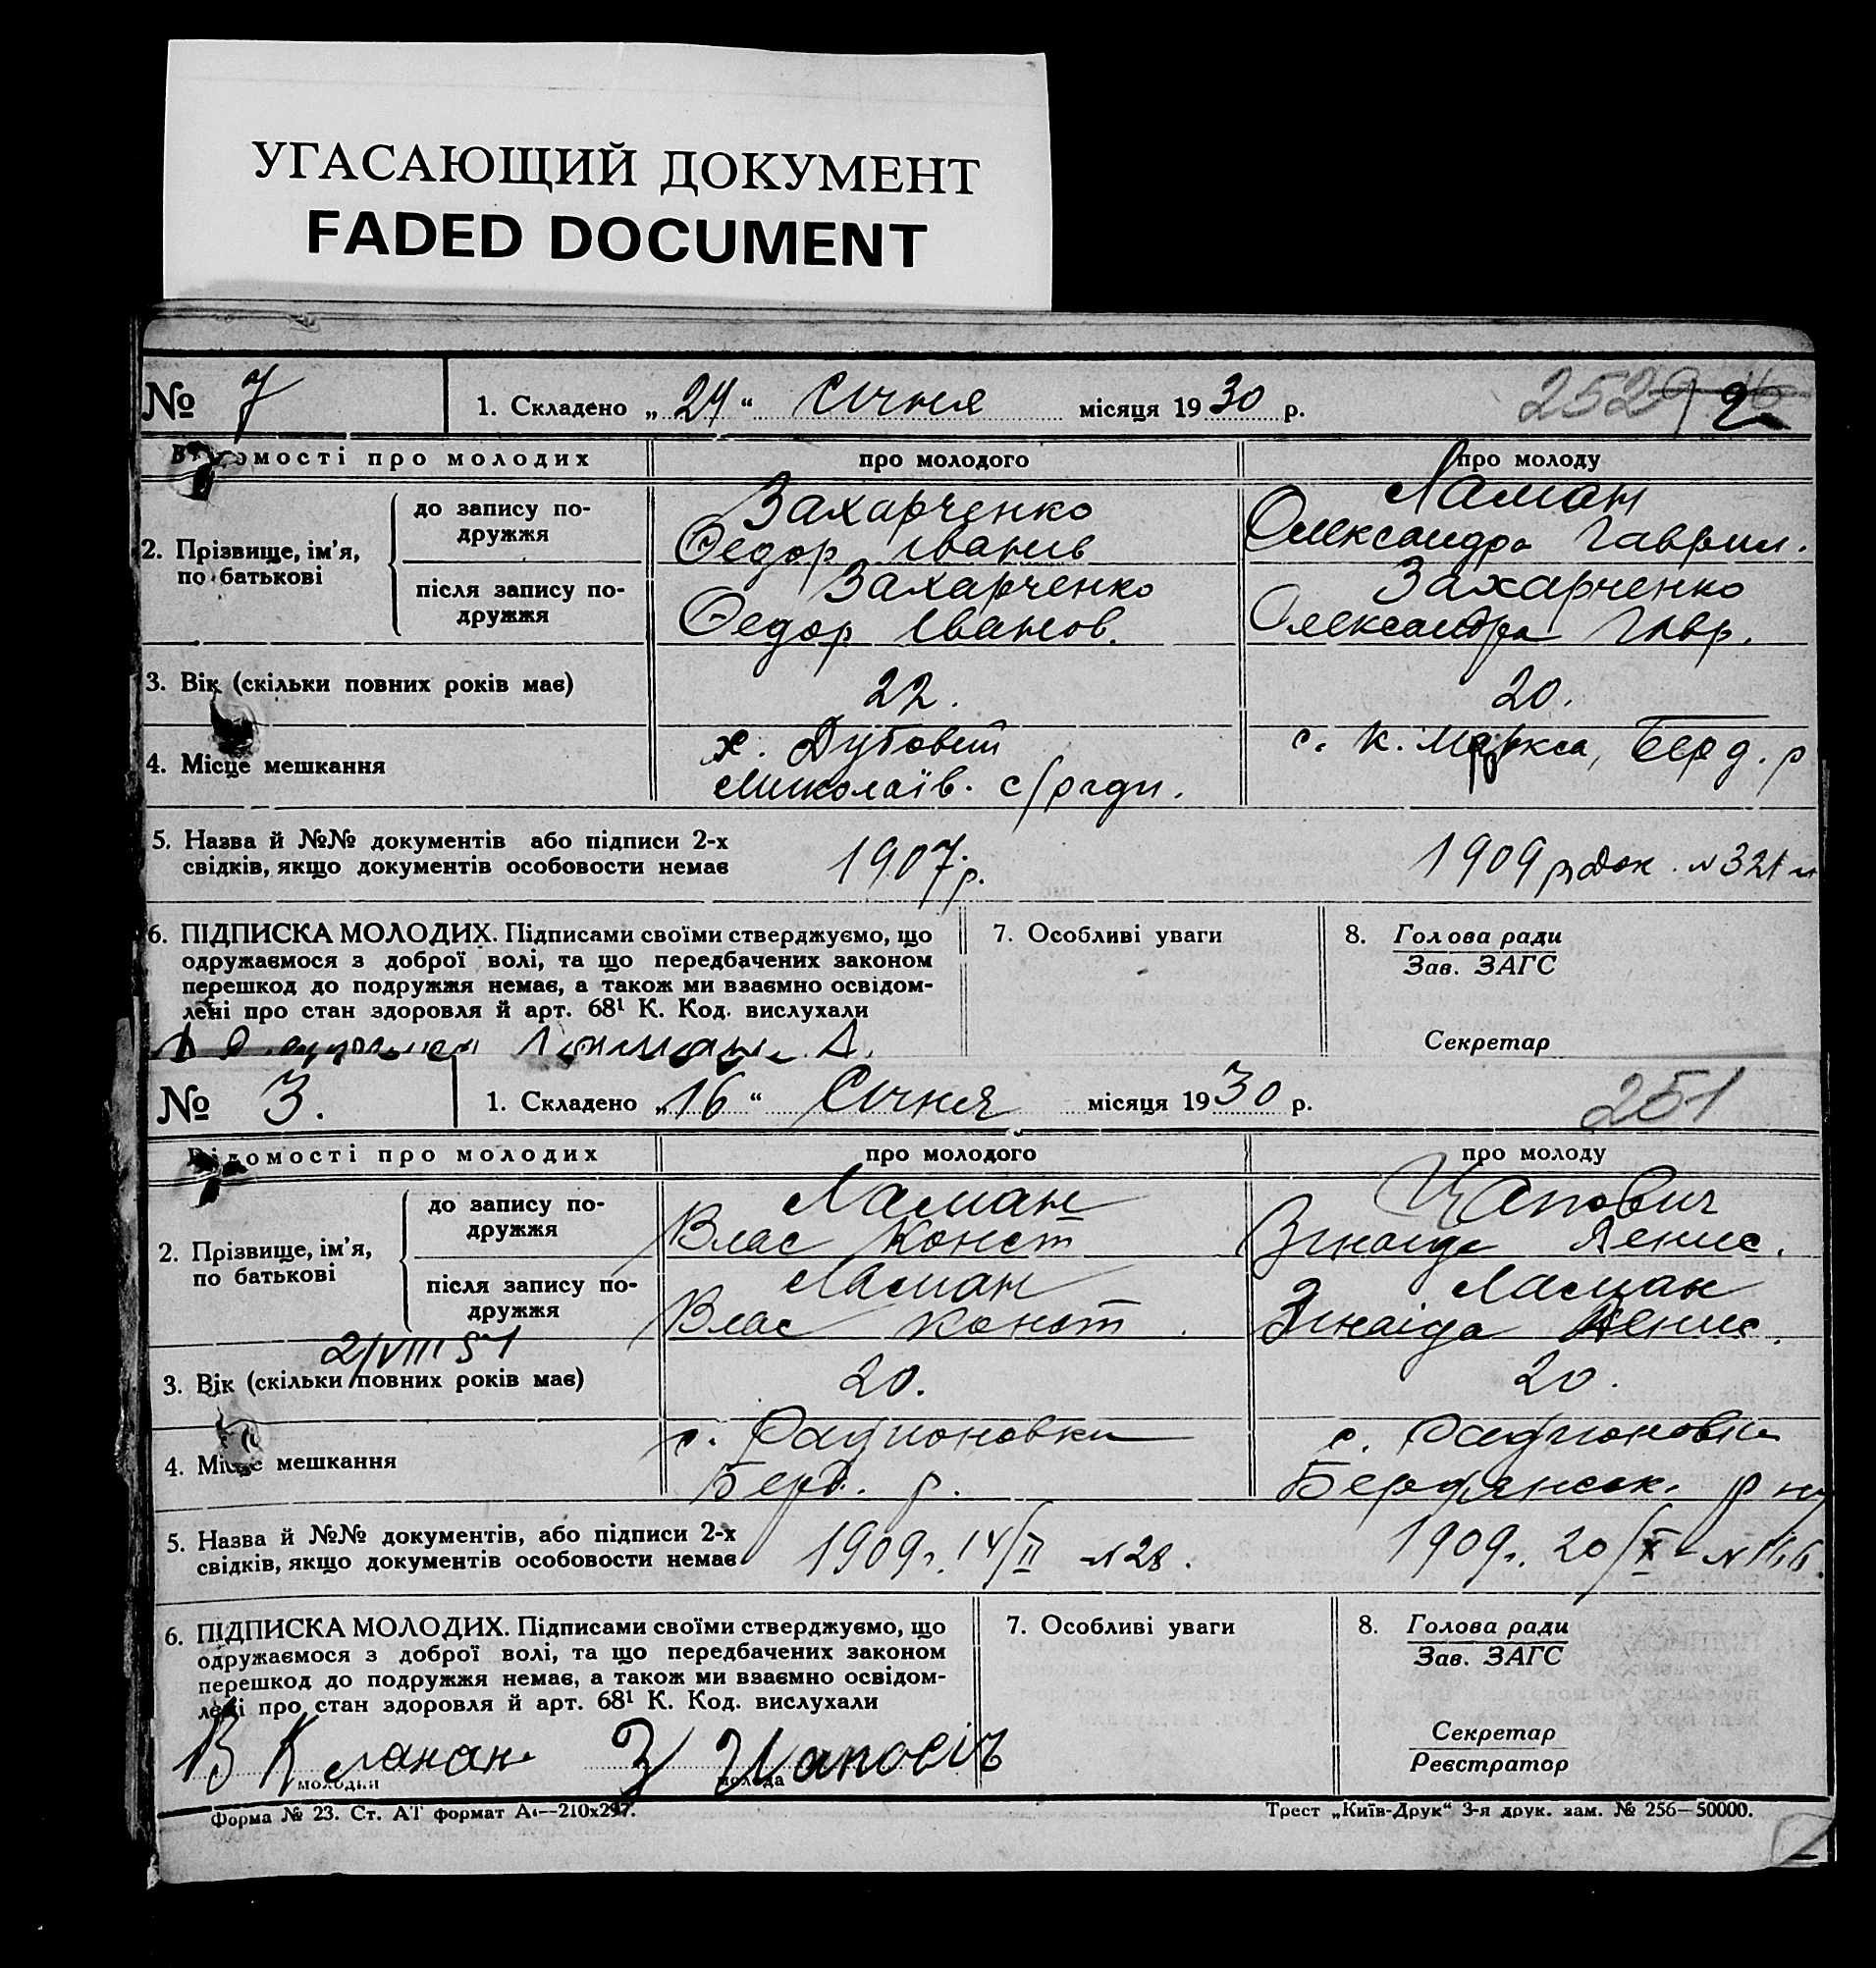 УГАСАЮЩИЙ ДОКУМЕНТ
FADED DOCUMENT
№ 7
1. Складено „24“ Січня місяця 1930 р.
252 2
Відомості про молодих
про молодого
про молоду
2. Прізвище, ім’я, по батькові
до запису по-
дружжя
Захарченко
Федор Іванів
Ламан
Олександра Гаврил.
після запису по-
дружжя
Захарченко
Федор Іванов.
Захарченко
Олександра Гавр.
3. Вік (скільки повних років має)
22.
20.
4. Місце мешкання
х. Дубовий
Миколаїв. с/ради.
с. К. Маркса, Берд. р
5. Назва й №№ документів або підписи 2-х
свідків, якщо документів особовости немає
1907 р.
1909 р Док. № 321
6. ПІДПИСКА МОЛОДИХ. Підписами своїми стверджуємо, що
одружаємося з доброї волі, та що передбачених законом
перешкод до подружжя немає, а також ми взаємно освідом-
лені про стан здоровля й арт. 68¹ К. Код. вислухали
7. Особливі уваги
8. Голова ради
Зав. ЗАГС
Секретар
А.
№ 3.
1. Складено „16“ Січня місяця 1930 р.
251
Відомості про молодих
про молодого
про молоду
2. Прізвище, ім’я, по батькові
до запису по-
дружжя
Ламан
Влас Конст
Цапович
Зінаіда Денис.
після запису по-
дружжя
Ламан
Влас Конст.
Ламан
Зінаіда Денис.
2/VIII 51
3. Вік (скільки повних років має)
20.
20.
4. Місце мешкання
с. Радионовки
Берд. р.
с. Радионовки
Бердянськ. р ну
5. Назва й №№ документів, або підписи 2-х
свідків, якщо документів особовости немає
1909 г. 14/II №28.
1909 г. 20/X
6. ПІДПИСКА МОЛОДИХ. Підписами своїми стверджуємо, що
одружаємося з доброї волі, та що передбачених законом
перешкод до подружжя немає, а також ми взаємно освідом-
лені про стан здоровля й арт. 68¹ К. Код. вислухали
7. Особливі уваги
8. Голова ради
Зав. ЗАГС
Секретар
Реєстратор
В К Ламан З Цаповіч
молодий
молода
Форма № 23. Ст. АТ формат А4—210х297.
Трест „Київ-Друк“ 3-я друк. зам. № 256—50000.